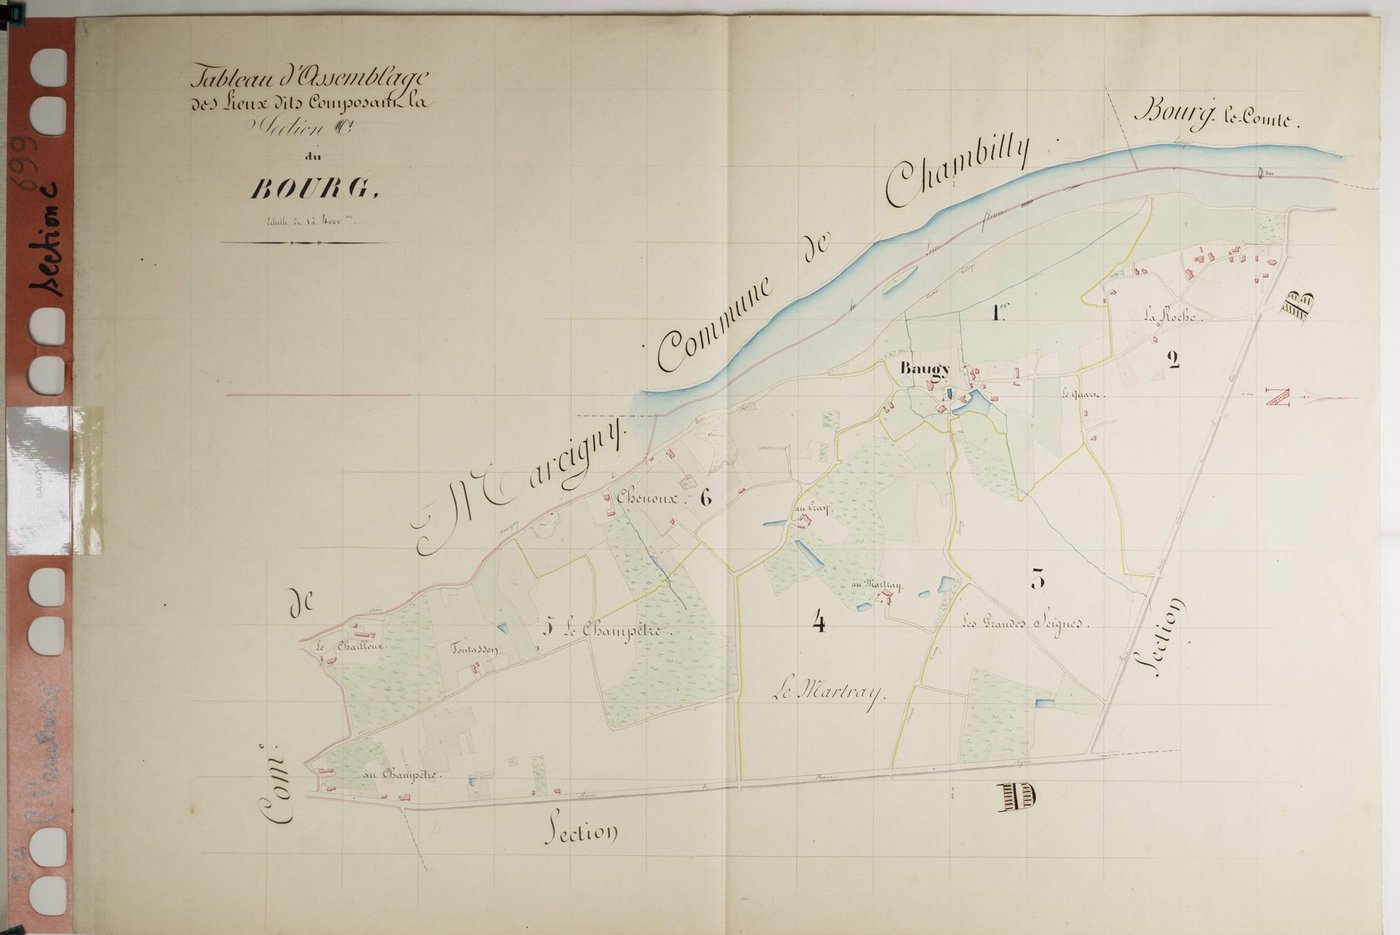 Tableau d'Assemblage
des Lieux dits Composant la
Section C
du
BOURG,
Echelle de 1 à 4000
section C
699
Bourg-le-Comte.
Commune de Chambilly
La Roche.
1er
2
B
Baugy
Le Quart.
N
Com. de Marcigny.
Chenoux.
6
au Cray.
au Martray.
3
Les Grandes Seignes.
4
5 Le Champêtre.
Le Chailloux.
Foutasson.
Le Martray.
au Champêtre.
Section
D
Section